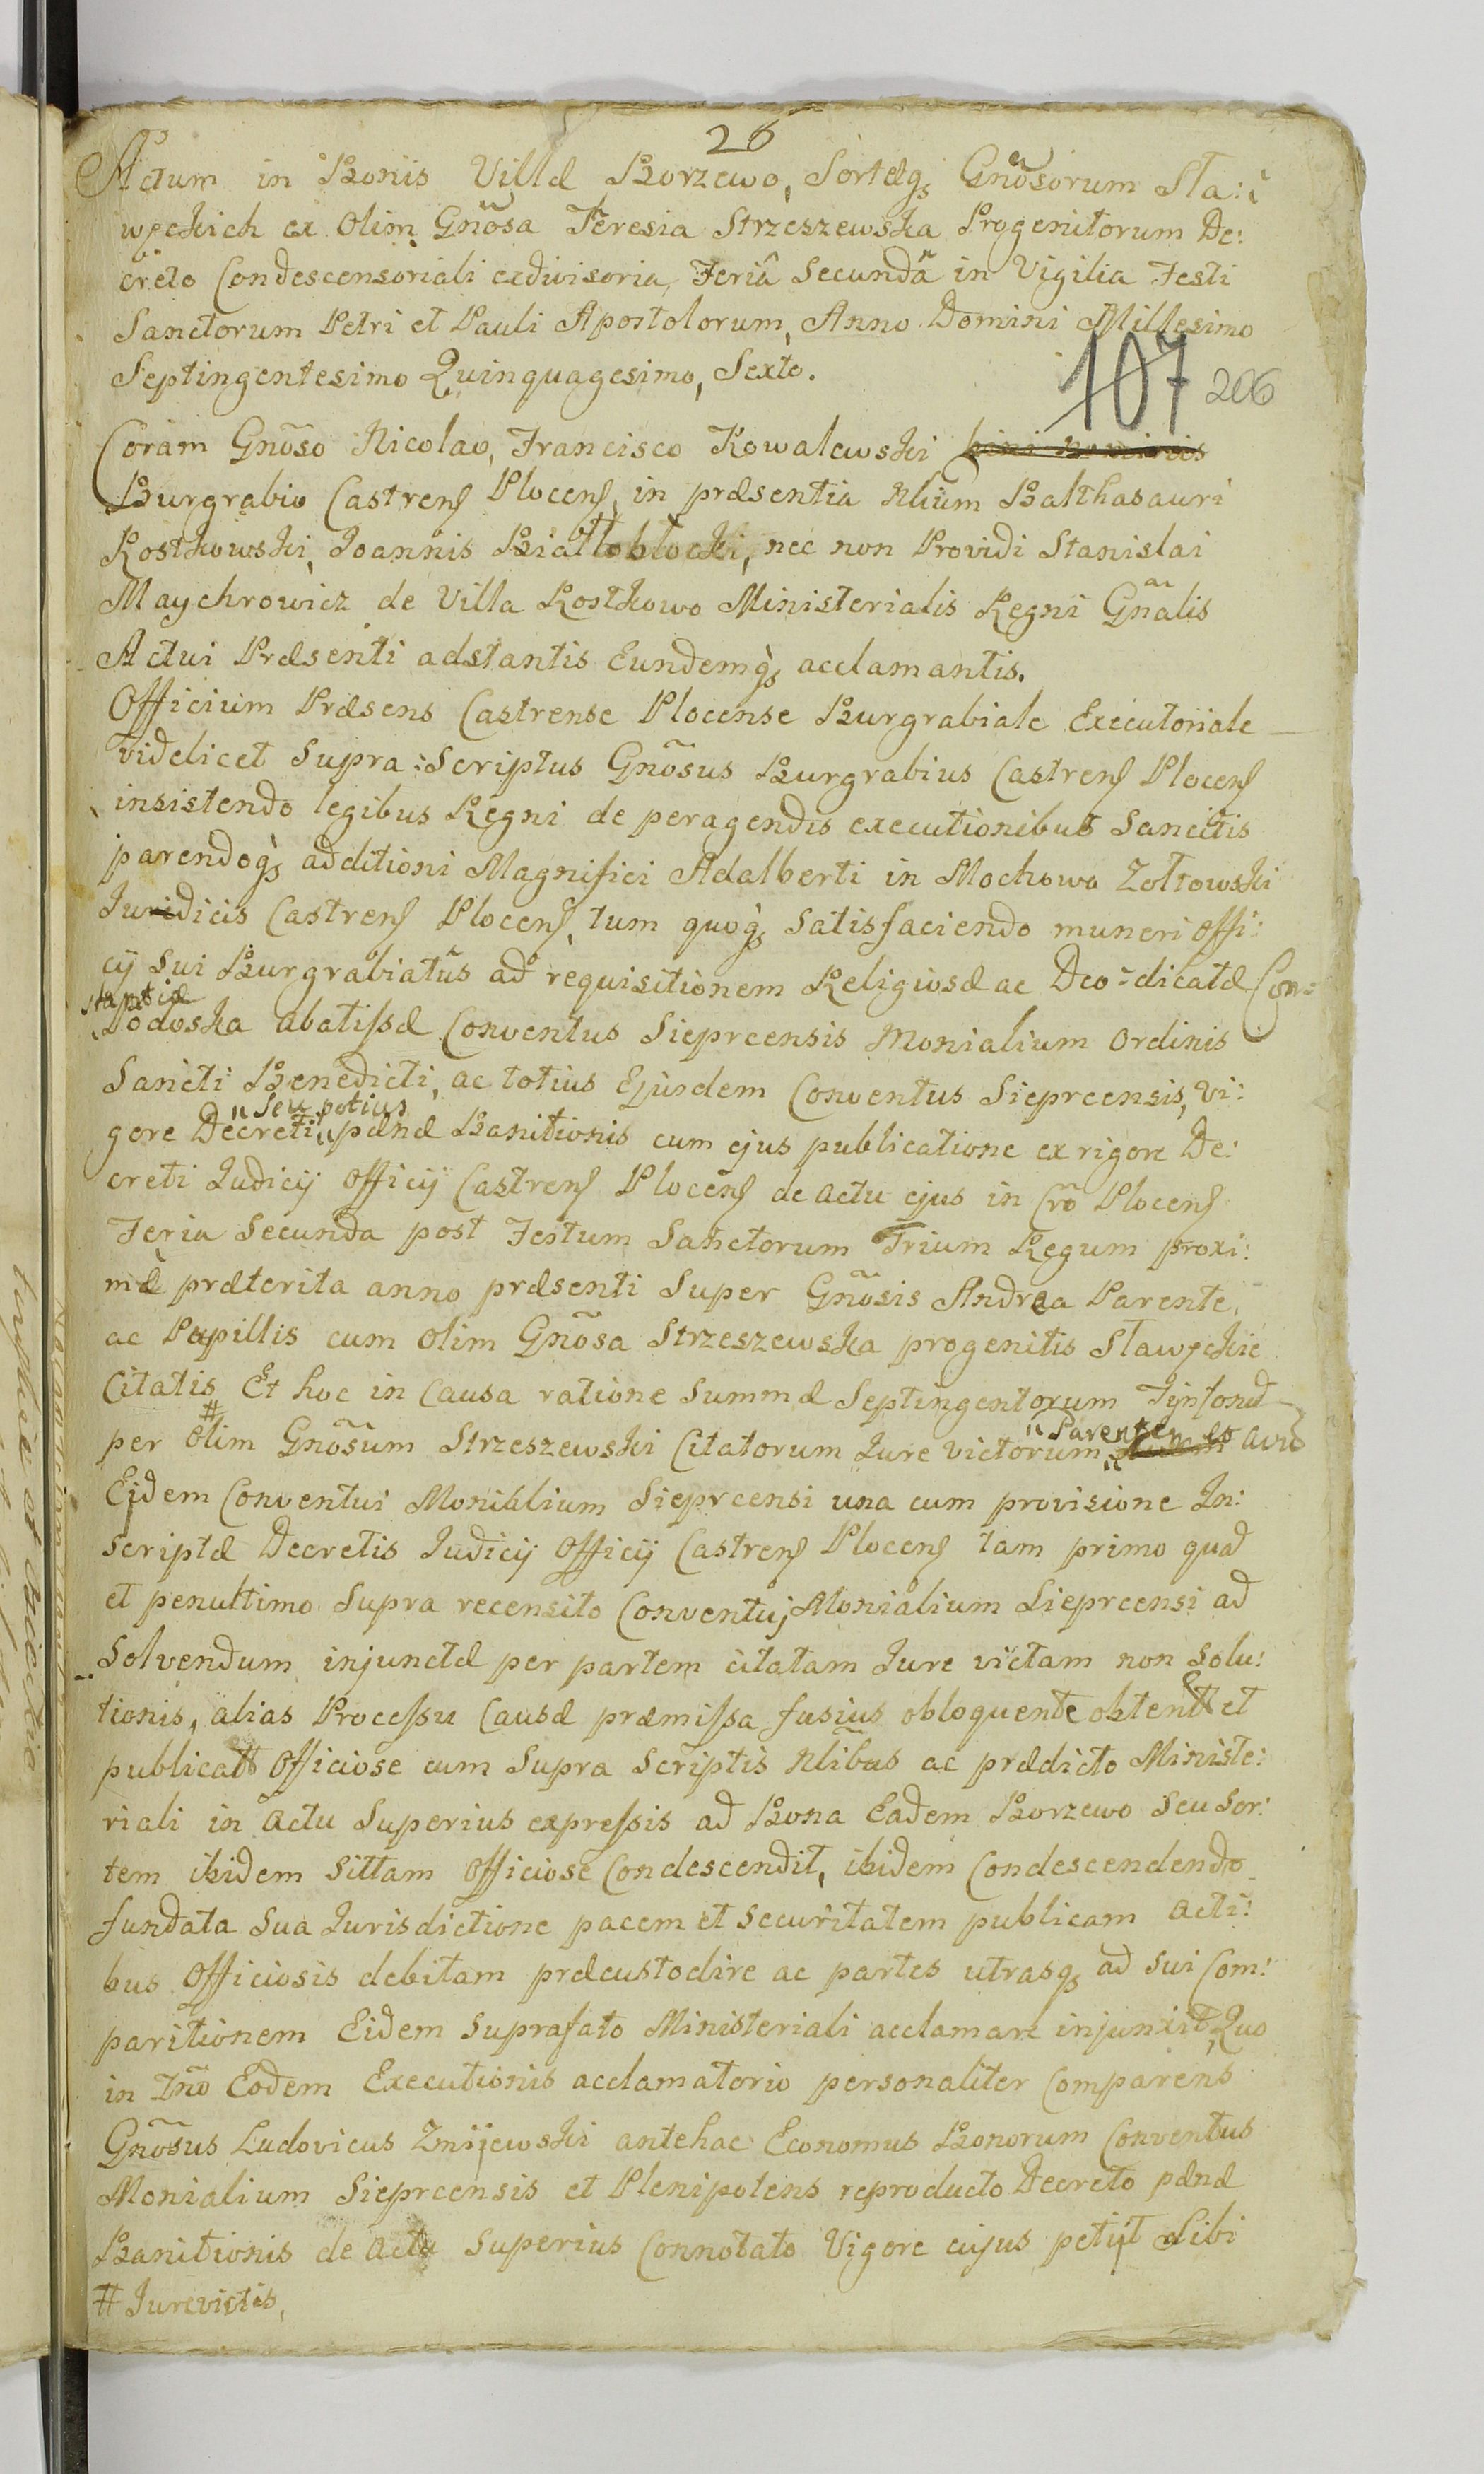 26
Actum in Bonis Villæ Borzewo, Sorteq3 Gnõsorum Sła:
węckich ex olim Gnõsa Teresia Strzeszewska Progenitorum De:
creto Condescensoriali exdivisoria, Feriâ Secundâ in Vigilia Festi
Sanctorum Petri et Pauli Apostolorum, Anno Domini Millesimo
Septingentesimo Quinquagesimo, Sexto.
107 206
Coram Gnõso Nicolao, Francisco Kowalewski
Burgrabio Castrens Plocens, in præsentia Nlium Balthasauri
Kostkowski, Joannis Białłobłocki, nec non Providi Stanislai
Maychrowicz de Villa Kostkowo Ministerialis Regni Gñalis
Actui Præsenti adstantis Eundemq3 acclamantis.
Officium Præsens Castrense Plocense Burgrabiale Executoriale
videlicet Supra:Scriptus Gnõsus Burgrabius Castrens Plocens
insistendo legibus Regni de peragendis executionibus Sancitis
parendoq3 additioni Magnifici Adalberti in Mochowo Zołtowski
Juridicis Castrens Plocens, tum quoq3 Satisfaciendo muneri Offi:
cij Sui Burgrabiatus ad requisitionem Religiosæ ac Deo-dicatæ Con:
stantiæ
Podoska abatissæ Conventus Sieprcensis Monialium Ordinis
Sancti Benedicti, ac totius Ejusdem Conventus Sieprcensis, vi:
" Seu potius
gore Decreti " pænæ Banitionis cum ejus publicatione ex rigore De:
creti Judicij Officij Castrens Plocens de actu ejus in Crõ Plocens
Feria Secunda post Festum Sanctorum Trium Regum proxi:
mæ præterita anno præsenti Super Gnõsis Andrea Parente,
ac Pupillis cum olim Gnõsa Strzeszewska progenitis Sławęckie
Citatis # Et hoc in Causa ratione Summæ Septingentorum Tynfonũ
" Parentem et
per olim Gnõsum Strzeszewski Citatorum Jure victorum " avũ
Eidem Conventui Monialium Sieprcensi una cum provisione In:
scriptæ Decretis Judicij Officij Castrens Plocens tam primo quad
et penultimo Supra recensito Conventuj Monialium Sieprcensi ad
Solvendum injunctæ per partem citatam Jure victam non Solu:
tionis, alias Processu Causæ præmissa fusius obloquente obtent et
publicat Officiose cum Supra Scriptis Nlibus ac prædicto Ministe:
riali in actu Superius expressis ad Bona Eadem Borzewo Seu Sor:
tem ibidem Sittam Officiose Condescendit, ibidem Condescendendo
fundata Sua Jurisdictione pacem et securitatem publicam acti:
bus Officiosis debitam præcustodire ac partes utrasq3 ad sui Com:
paritionem Eidem Suprafato Ministeriali acclamare injunxit, Quo
in Tñno Eodem Executionis acclamatorio personaliter Comparens
Gnõsus Ludovicus Zmijewski antehac Economus Bonorum Conventus
Monialium Sieprcensis et Plenipotens reproducto Decreto pænæ
Banitionis de actu Superius Connotato Vigore cujus petijt Sibi
# Jurevictis,